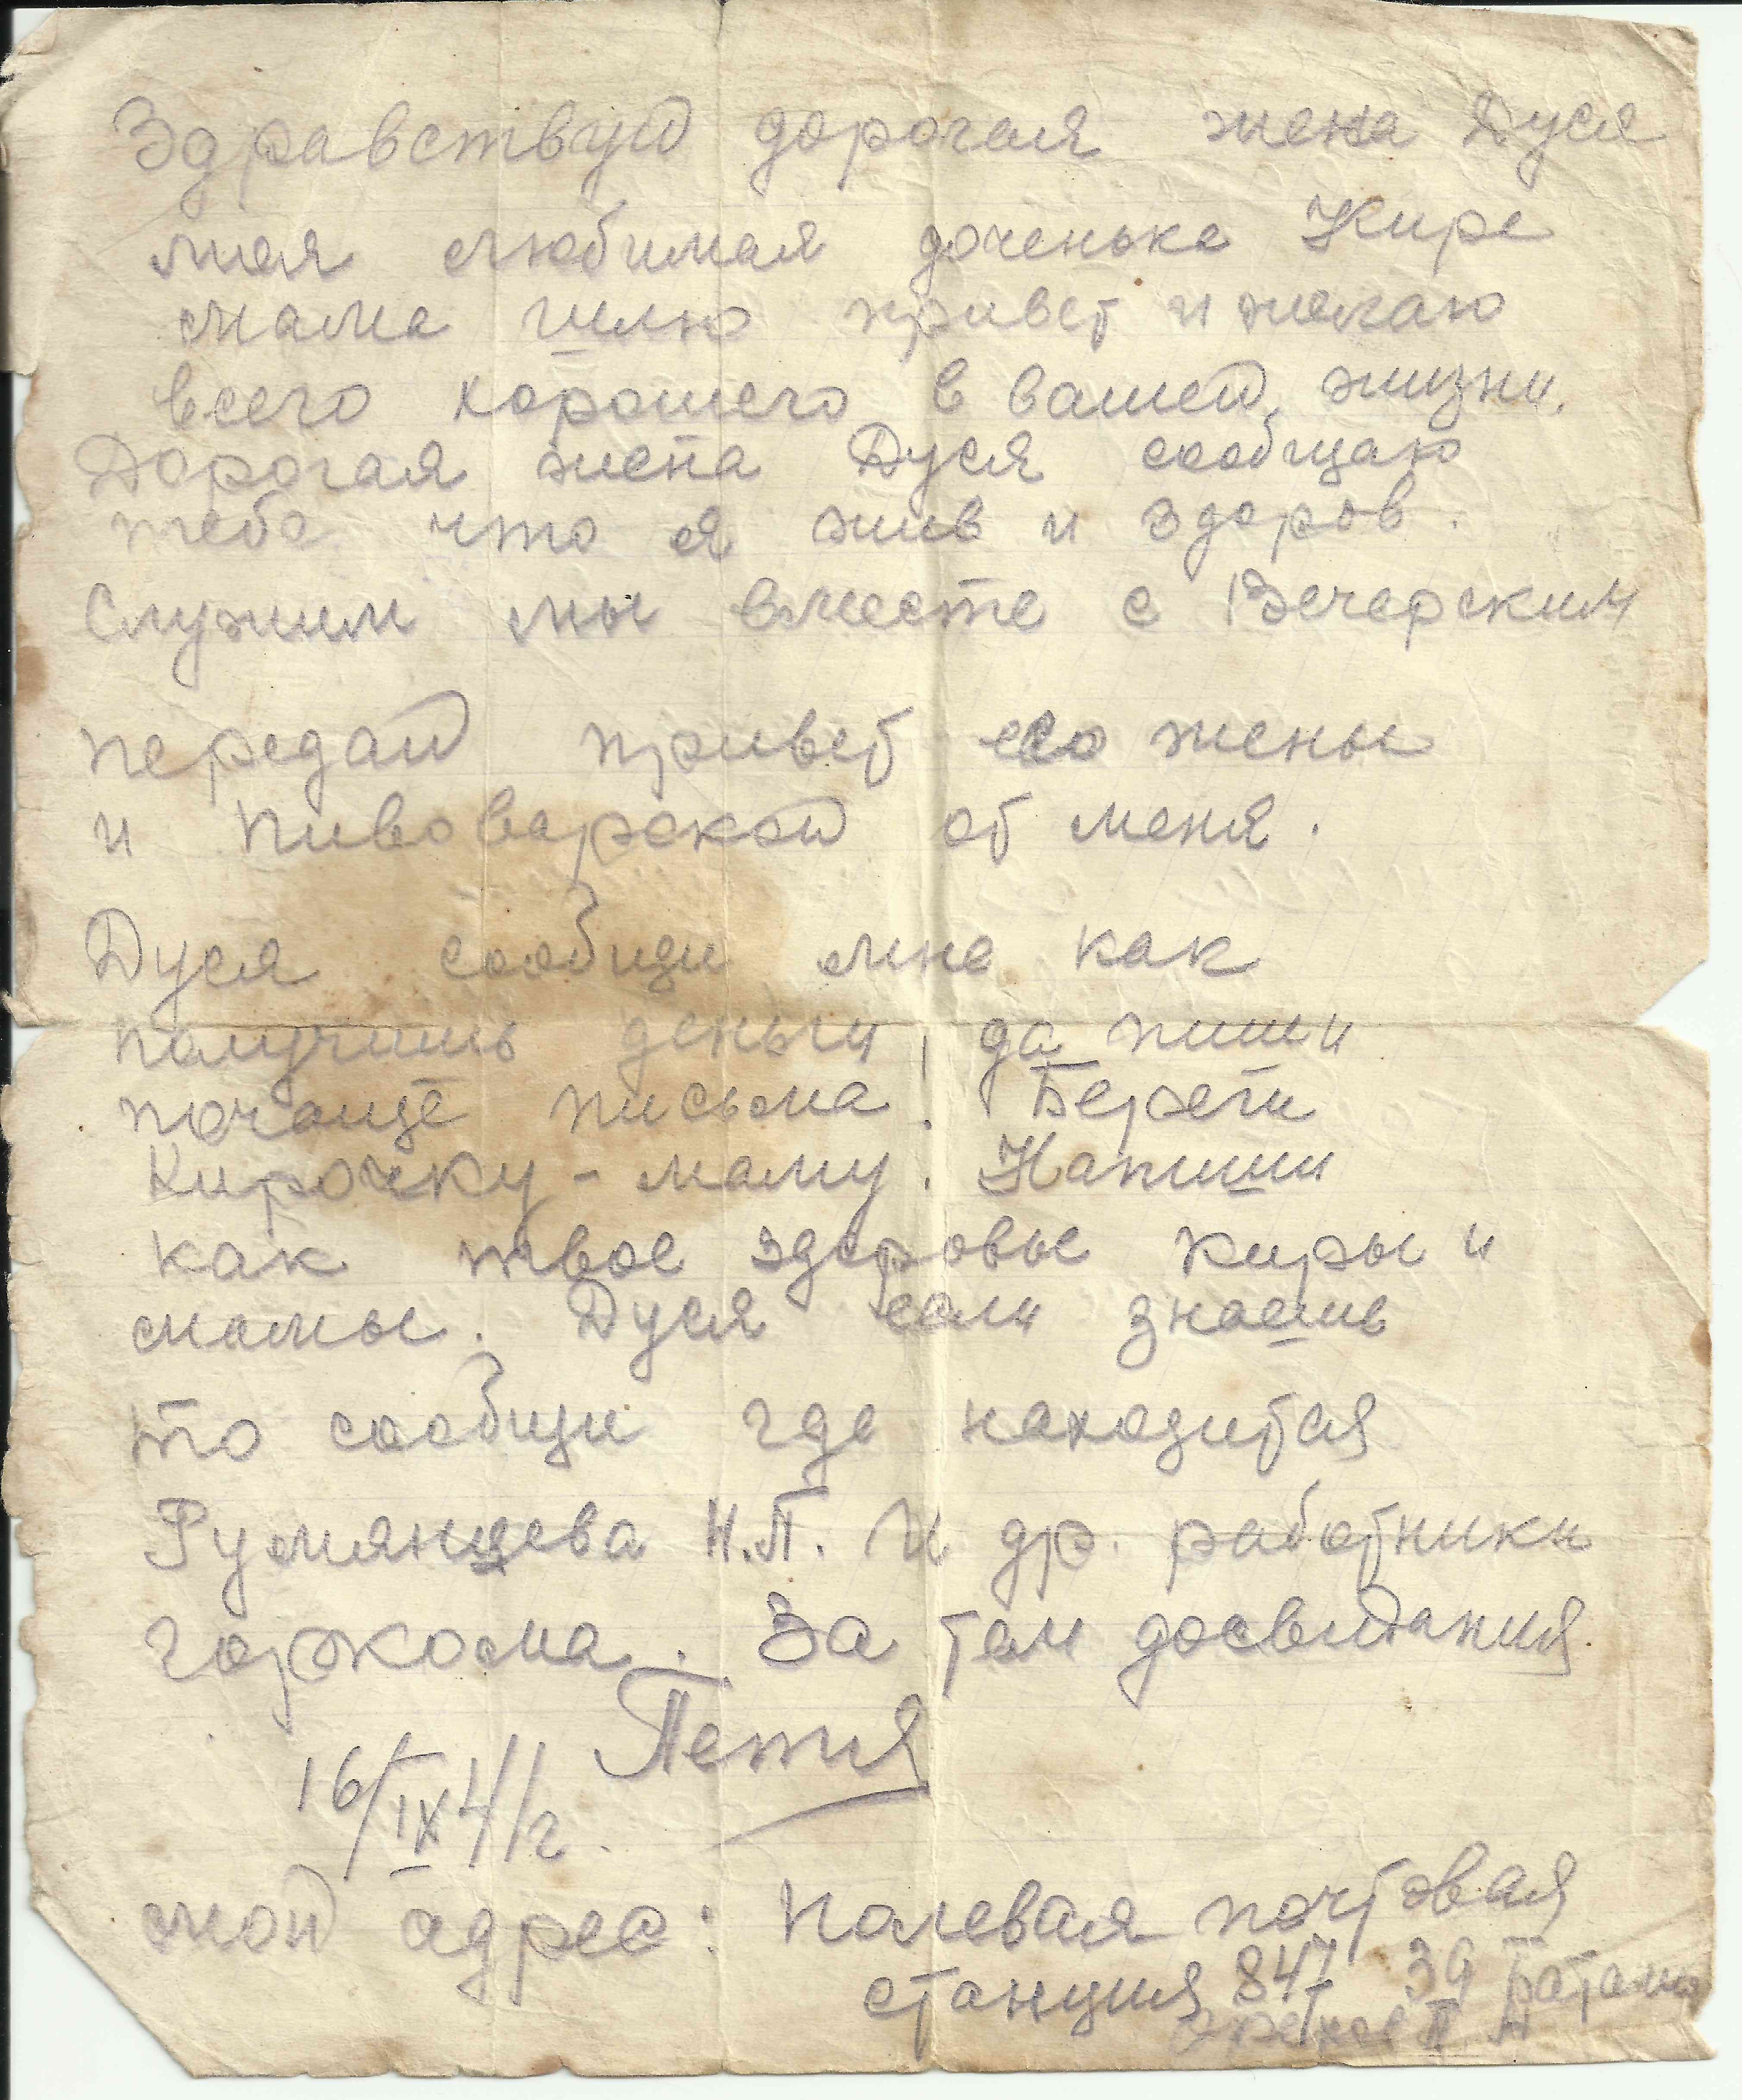 Здравствуй дорогая жена Дуся
моя любимая доченька Кира
мама шлю привет и желаю
всего хорошего в вашей жизни.
Дорогая жена Дуся сообщаю
тебе что я жив и здоров.
Служим мы вместе с Вечерским
передай привет его жены
и Пивоварской от меня.
Дуся сообщи мне как
получишь деньги, да пиши
почаще письма! Береги
Кирочку - маму. Напиши
как твое здоровье Киры и
мамы. Дуся если знаешь
то сообщи где находится
Румянцева Н.П. и др. работники
горкома. За тем досвидания.
Петя
16/IX 41 г.
мой адрес: Полевая почтовая
станция 847 39 Баталион